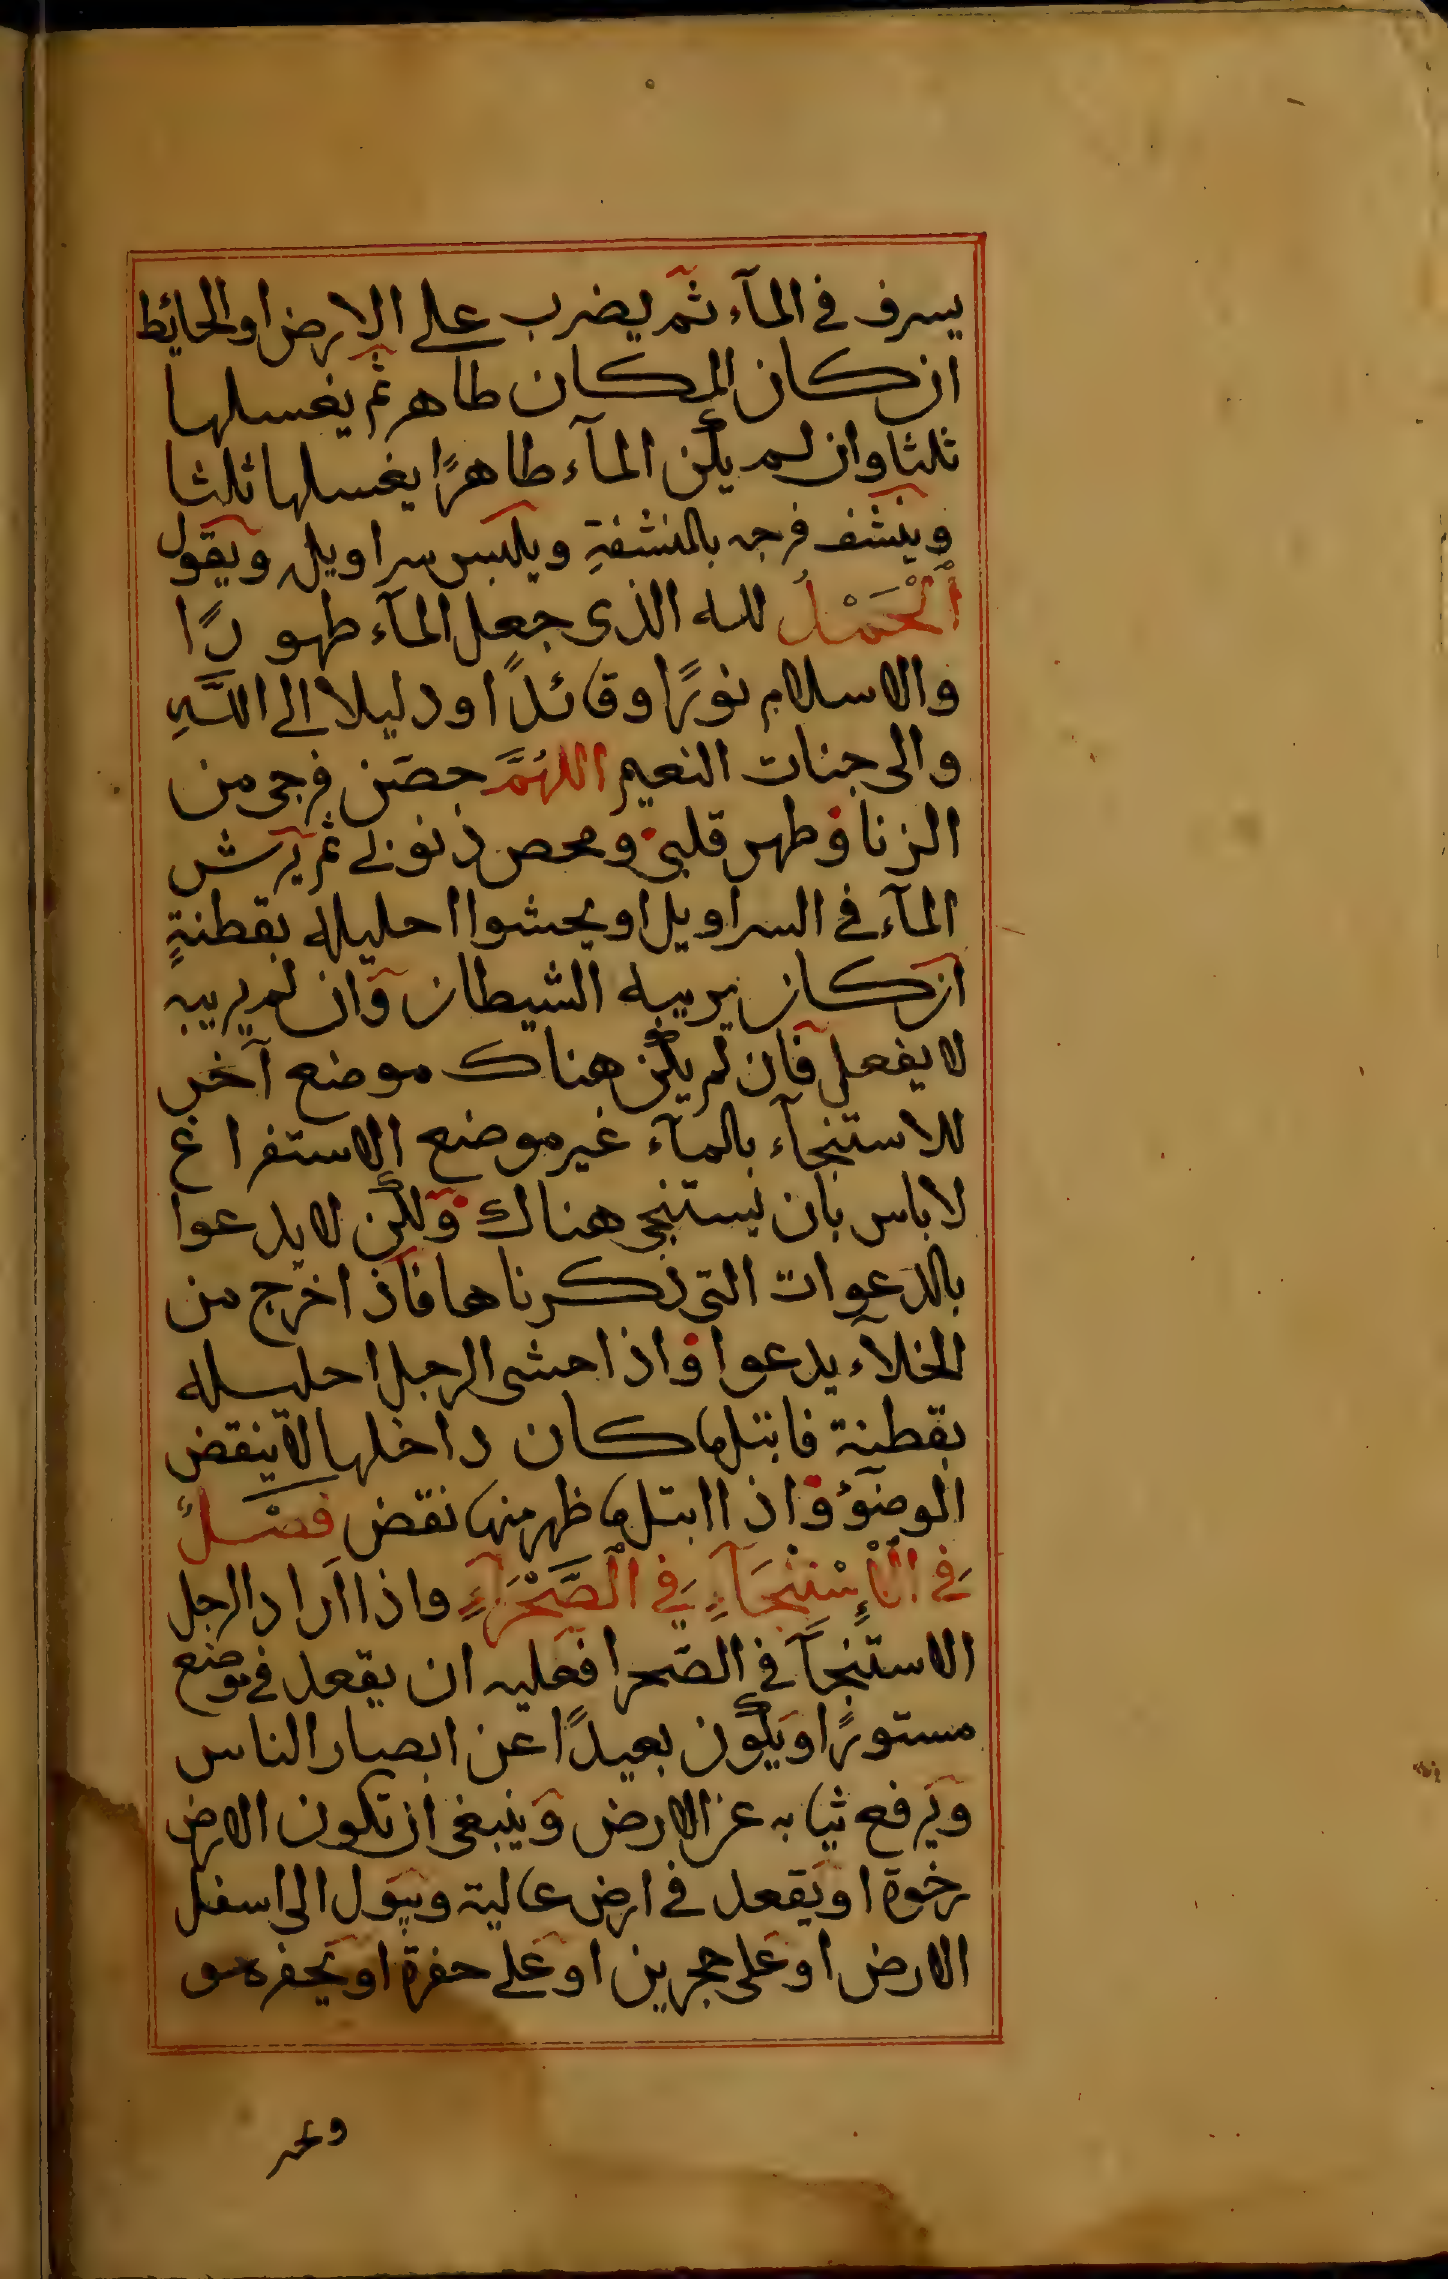 يسرف في المآء ثم يضرب على الارض او الحايط
ان كان المكان طاهر ثم يغسلها
ثلثا وان لم يكن المآء طاهرًا يغسلها ثلثا
وينشف فرجه بالمنشفةِ ويلبس سراويل ويقول
اَلْحَمْدُ لله الذى جعل المآء طهورًا
والاسلام نورًا وقائدًا ودليلا الى اللّهِ
والى جنات النعيم اللهُمَّ حصّن فرجى من
الزنا وطهر قلبى ومحص ذنوبى ثم يرش
المآء فى السراويل او يحشوا احليله بقطنةٍ
ان كان يريبه الشيطان وان لم يريبه
لا يفعل فان لم يكن هناك موضع آخر
للاستنجآء بالمآء غير موضع الاستفراغ
لا باس بان يستنجى هناك ولكن لا يدعوا
بالدعوات التى ذكرناها فاذا خرج من
الخلآء يدعوا واذا حشى الرجل احليله
بقطنة فابتل ما كان داخلها لا ينقض
الوضوٓء واذا ابتل ما ظهر منها نقض فصْلٌ
فِى الْاِسْتِنْجَآءِ فِى الْصَّحْرَآءِ واذا اراد الرجل
الاستنجآ فى الصّحرا فعليه ان يقعد فى موضع
مستورًا ويكون بعيدًا عن ابصار الناس
ويرفع ثيابه عن الارض وينبغى ان تكون الارض
رخوة او يقعد فى ارض عالية ويبول الى اسفل
الارض او على حجرين او على حفرة او يحفر هو